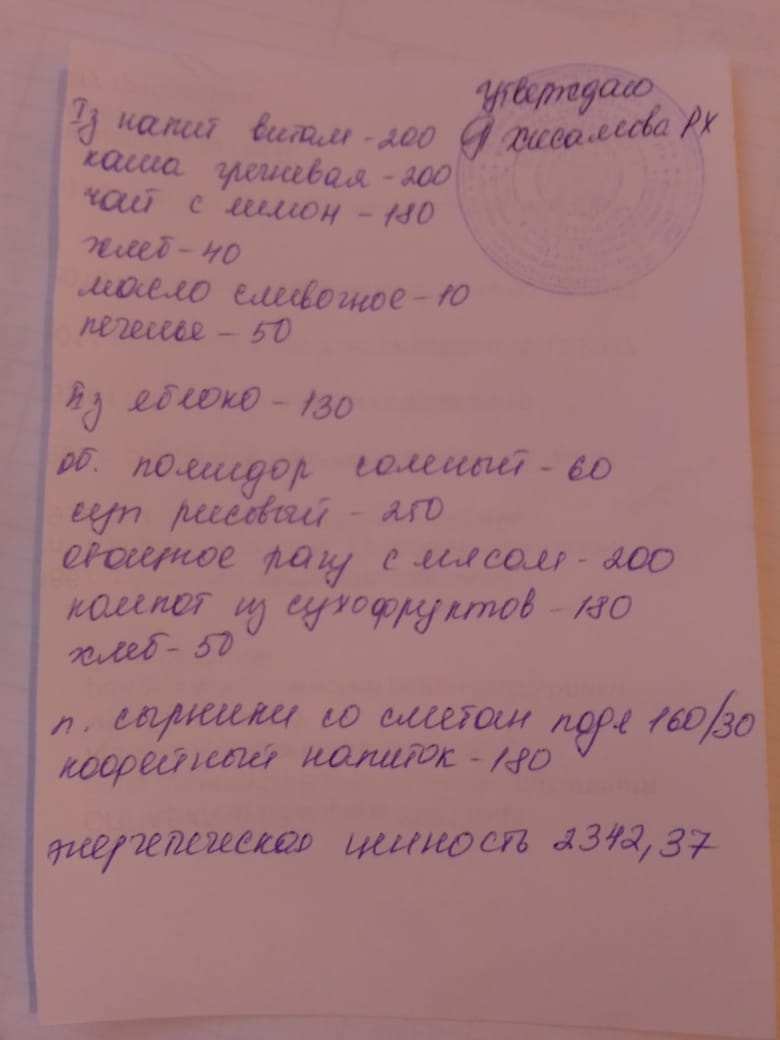 Утверждаю
Iз напит витам - 200 Хисамова РХ
каша гречневая - 200
чай с лимон - 180
хлеб - 40
масло сливочное - 10
печенье - 50
IIз яблоко - 130
об. помидор соленый - 60
суп рисовый - 250
овощное рагу с мясом - 200
компот из сухофруктов - 180
хлеб - 50
п. сырники со сметан подл 160/30
кофейный напиток - 180
энергетическая ценность 2342,37